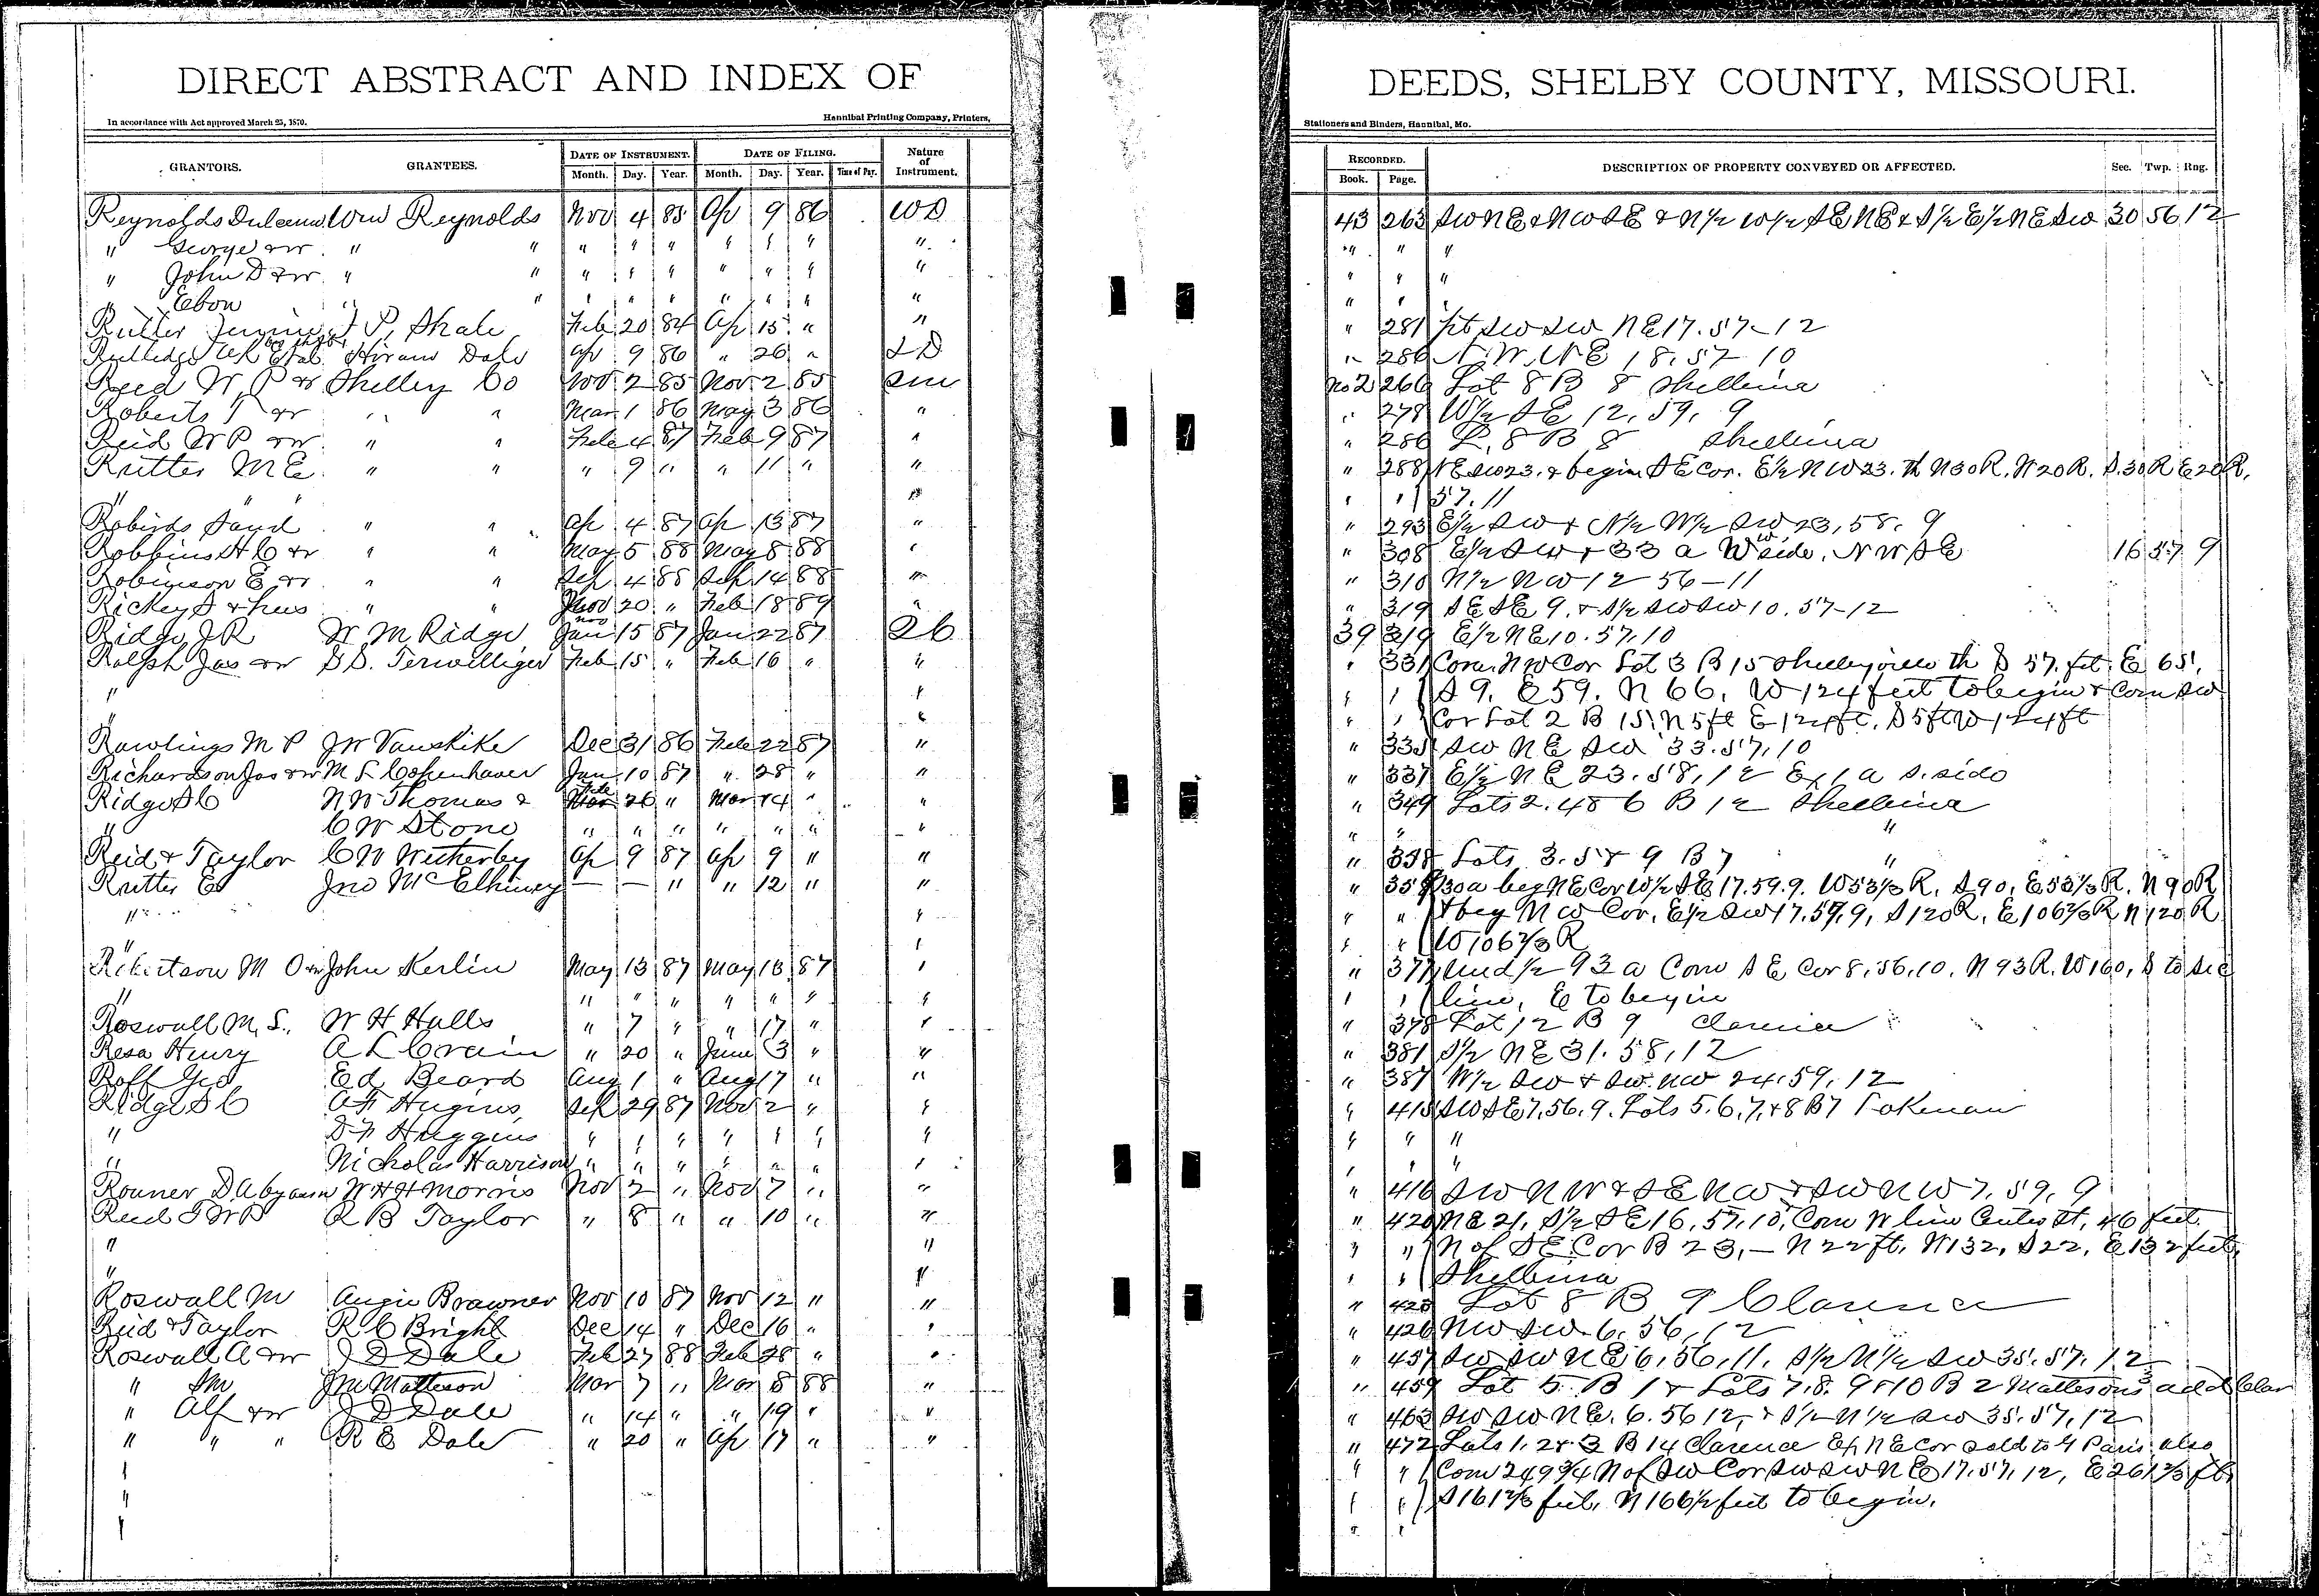 DIRECT ABSTRACT AND INDEX OF
In accordance with Act approved March 25, 1870. Hannibal Printing Company, Printers,
GRANTORS. GRANTEES. DATE OF INSTRUMENT. DATE OF FILING. Nature of Instrument.
Month. Day. Year. Month. Day. Year. Time of Day.
Reynolds Wm Reynolds Nov 4 85 Ap 9 86 WD
" George & w " " " " " " " " "
" John D & w " " " " " " " " "
" Ebon " " " " " " " " "
Rutter J P, Shale Feb 20 84 Ap 15 " "
Rutledge Et al Hiram Dale Ap 9 86 " 26 "
Reed W, P & w Shelby Co Nov 2 85 Nov 2 85 Sm
Roberts T & w " " Mar 1 86 May 3 86 "
Reid W P & w " " Feb 4 87 Feb 9 87 "
Rutter M E " " " 9 " " 11 " "
" " " "
Robirds Saml " " Ap 4 87 Ap 13 87 "
Robbins H C & w " " May 5 88 May 8 88 "
Robinson E & w " " Sep 4 88 Sep 14 88 "
Rickey S & hus " " Nov 20 " Feb 18 89 "
Ridge J R W M Ridge Jan 15 87 Jan 22 87
Ralph Jas & w S S. Terwilliger Feb 15 " Feb 16 " "
" "
" "
Rawlings M P J W Vanskike Dec 31 86 Feb 22 87 "
Richardson Jas & w M L Copenhaver Jan 10 87 " 28 " "
Ridge S C N W Thomas & Feb 26 " Mar 14 " "
" C W Stone " " " " " " "
Reid & Taylor C W Witherby Ap 9 87 Ap 9 " "
Rutter E Jno McElhiney — — " " 12 " "
" "
" "
Robertson M O & w John Kerlin May 13 87 May 13 87 "
" " " " " " " "
Roswall M. S., W H Halls " 7 " " 17 " "
Resa Henry A L Crain " 20 " June 3 " "
Roff Geo Ed Beard Aug 1 " Aug 17 " "
Ridge S C A F Hugins Sep 29 87 Nov 2 " "
" D F Huggins " " " " " " "
" Nicholas Harrison " " " " " " "
Rouner D A W H H Morris Nov 2 " Nov 7 " "
Reed T W P R B Taylor " 8 " " 10 " "
" "
" "
Roswall M Angie Brawner Nov 10 87 Nov 12 " "
Reid & Taylor R C Bright Dec 14 " Dec 16 " "
Roswall A & w J D Dale Feb 27 88 Feb 28 " "
" J M Matteson Mar 7 " Mar 8 88 "
" Alf & w J D Dale " 14 " " 19 " "
" " " R E Dale " 20 " Ap 17 " "
"
"
"
DEEDS, SHELBY COUNTY, MISSOURI.
Stationers and Binders, Hannibal, Mo.
RECORDED. DESCRIPTION OF PROPERTY CONVEYED OR AFFECTED. Sec. Twp. Rng.
Book. Page.
43 263 SW NE & NW SE & N 1/2 W 1/2 SE, NE & S 1/2 E 1/2 NE SW 30 56 12
" " "
" " "
" " "
" 281 pt SW SW NE 17. 57–12
" 286 N. W, NE 18. 57 10
No 2 266 Lot 8 B 8 Shelbina
" 278 W 1/2 SE 12, 59, 9
" 286 L. 8 B 8 Shelbina
" 288 NE SW 23. & begin SE Cor. E 1/2 NW 23. th N 30 R. W 20 R. S. 30 R E 20 R,
" " 57. 11
" 293 E 1/2 SW & N 1/2 W 1/2 SW 23, 58. 9
" 308 E 1/2 SW & 33 a W side. NW SE 16 57 9
" 310 N 1/2 NW 12 56–11
" 319 SE SE 9. & S 1/2 SW SW 10. 57–12
39 319 E 1/2 NE 10. 57. 10
" 331 Com. NW Cor Lot 3 B 15 Shelbyville th S 57. ft. E 65,
" " S 9, E 59. N 66, W 124 feet to begin & Com SW
" " Cor Lot 2 B 15, N 5 ft E 124 ft. S 5 ft W 124 ft
" 335 SW NE SW 33. 57. 10
" 337 E 1/2 NE 23. 58, 12 Ex 1 a S. side
" 349 Lots 2. 4 & 6 B 12 Shelbina
" " "
" 358 Lots 3. 5 & 9 B 7 "
" 358 30 a beg NE Cor W 1/2 SE 17. 59. 9. W 53 1/3 R, S 90, E 53 1/3 R. N 90 R
" " & beg NW Cor, E 1/2 SW 17. 59, 9, S 120 R, E 106 2/3 R N 120 R
" " W 106 2/3 R
" 377 Und 1/2 93 a Com SE Cor 8, 56, 10, N 93 R. W 160, S to Sec
" " line, E to begin
" 378 Lot 12 B 9 Clarence
" 381 S 1/2 NE 31. 58, 12
" 387 W 1/2 SW & SW. NW 24. 59, 12
" 415 SW SE 7, 56, 9. Lots 5. 6, 7, & 8 B 7 Lakenan
" " "
" " "
" 416 SW NW & SE NW & SW NW 7, 59, 9
" 420 NE 21, S 1/2 SE 16, 57, 10, Com W line Center St, 46 feet
" " N of SE Cor B 23,– N 22 ft, W 132, S 22, E 132 feet,
" " Shelbina
" 423 Lot 8 B 9 Clarence
" 426 NW SW 6, 56, 12
" 457 SW SW NE 6, 56, 11. S 1/2 N 1/2 SW 35. 57. 12
" 459 Lot 5 B 1 & Lots 7. 8. 9 & 10 B 2 Mattesons add Clar
" 463 SW SW NE. 6. 56 12, & S 1/2 N 1/2 SW 35. 57, 12
" 472 Lots 1, 2 & 3 B 14 Clarence Ex NE Cor sold to G Paris also
" " Com 249 3/4 N of SW Cor SW SW NE 17. 57, 12, E 261 2/3 ft,
" " S 161 2/3 feet, N 166 1/2 feet to begin.
" "